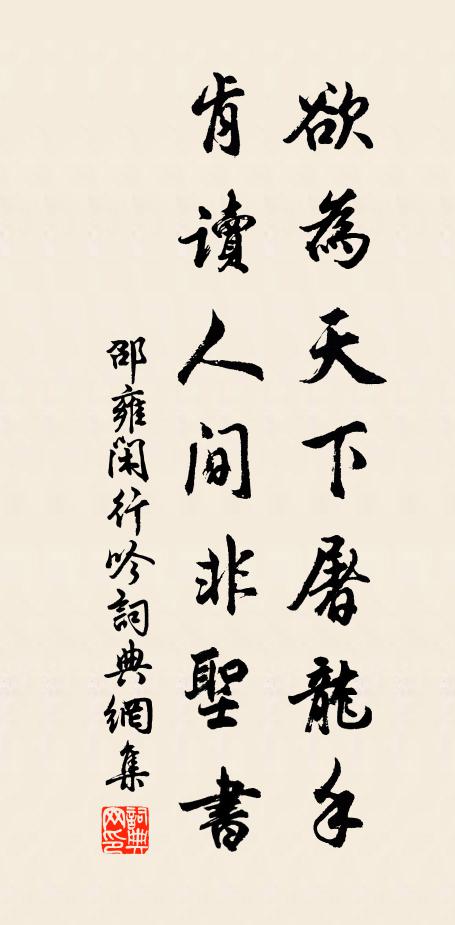 欲為天下屠龍手
肯讀人間非聖書
邵雍閑行吟詞典網集
詞典网印